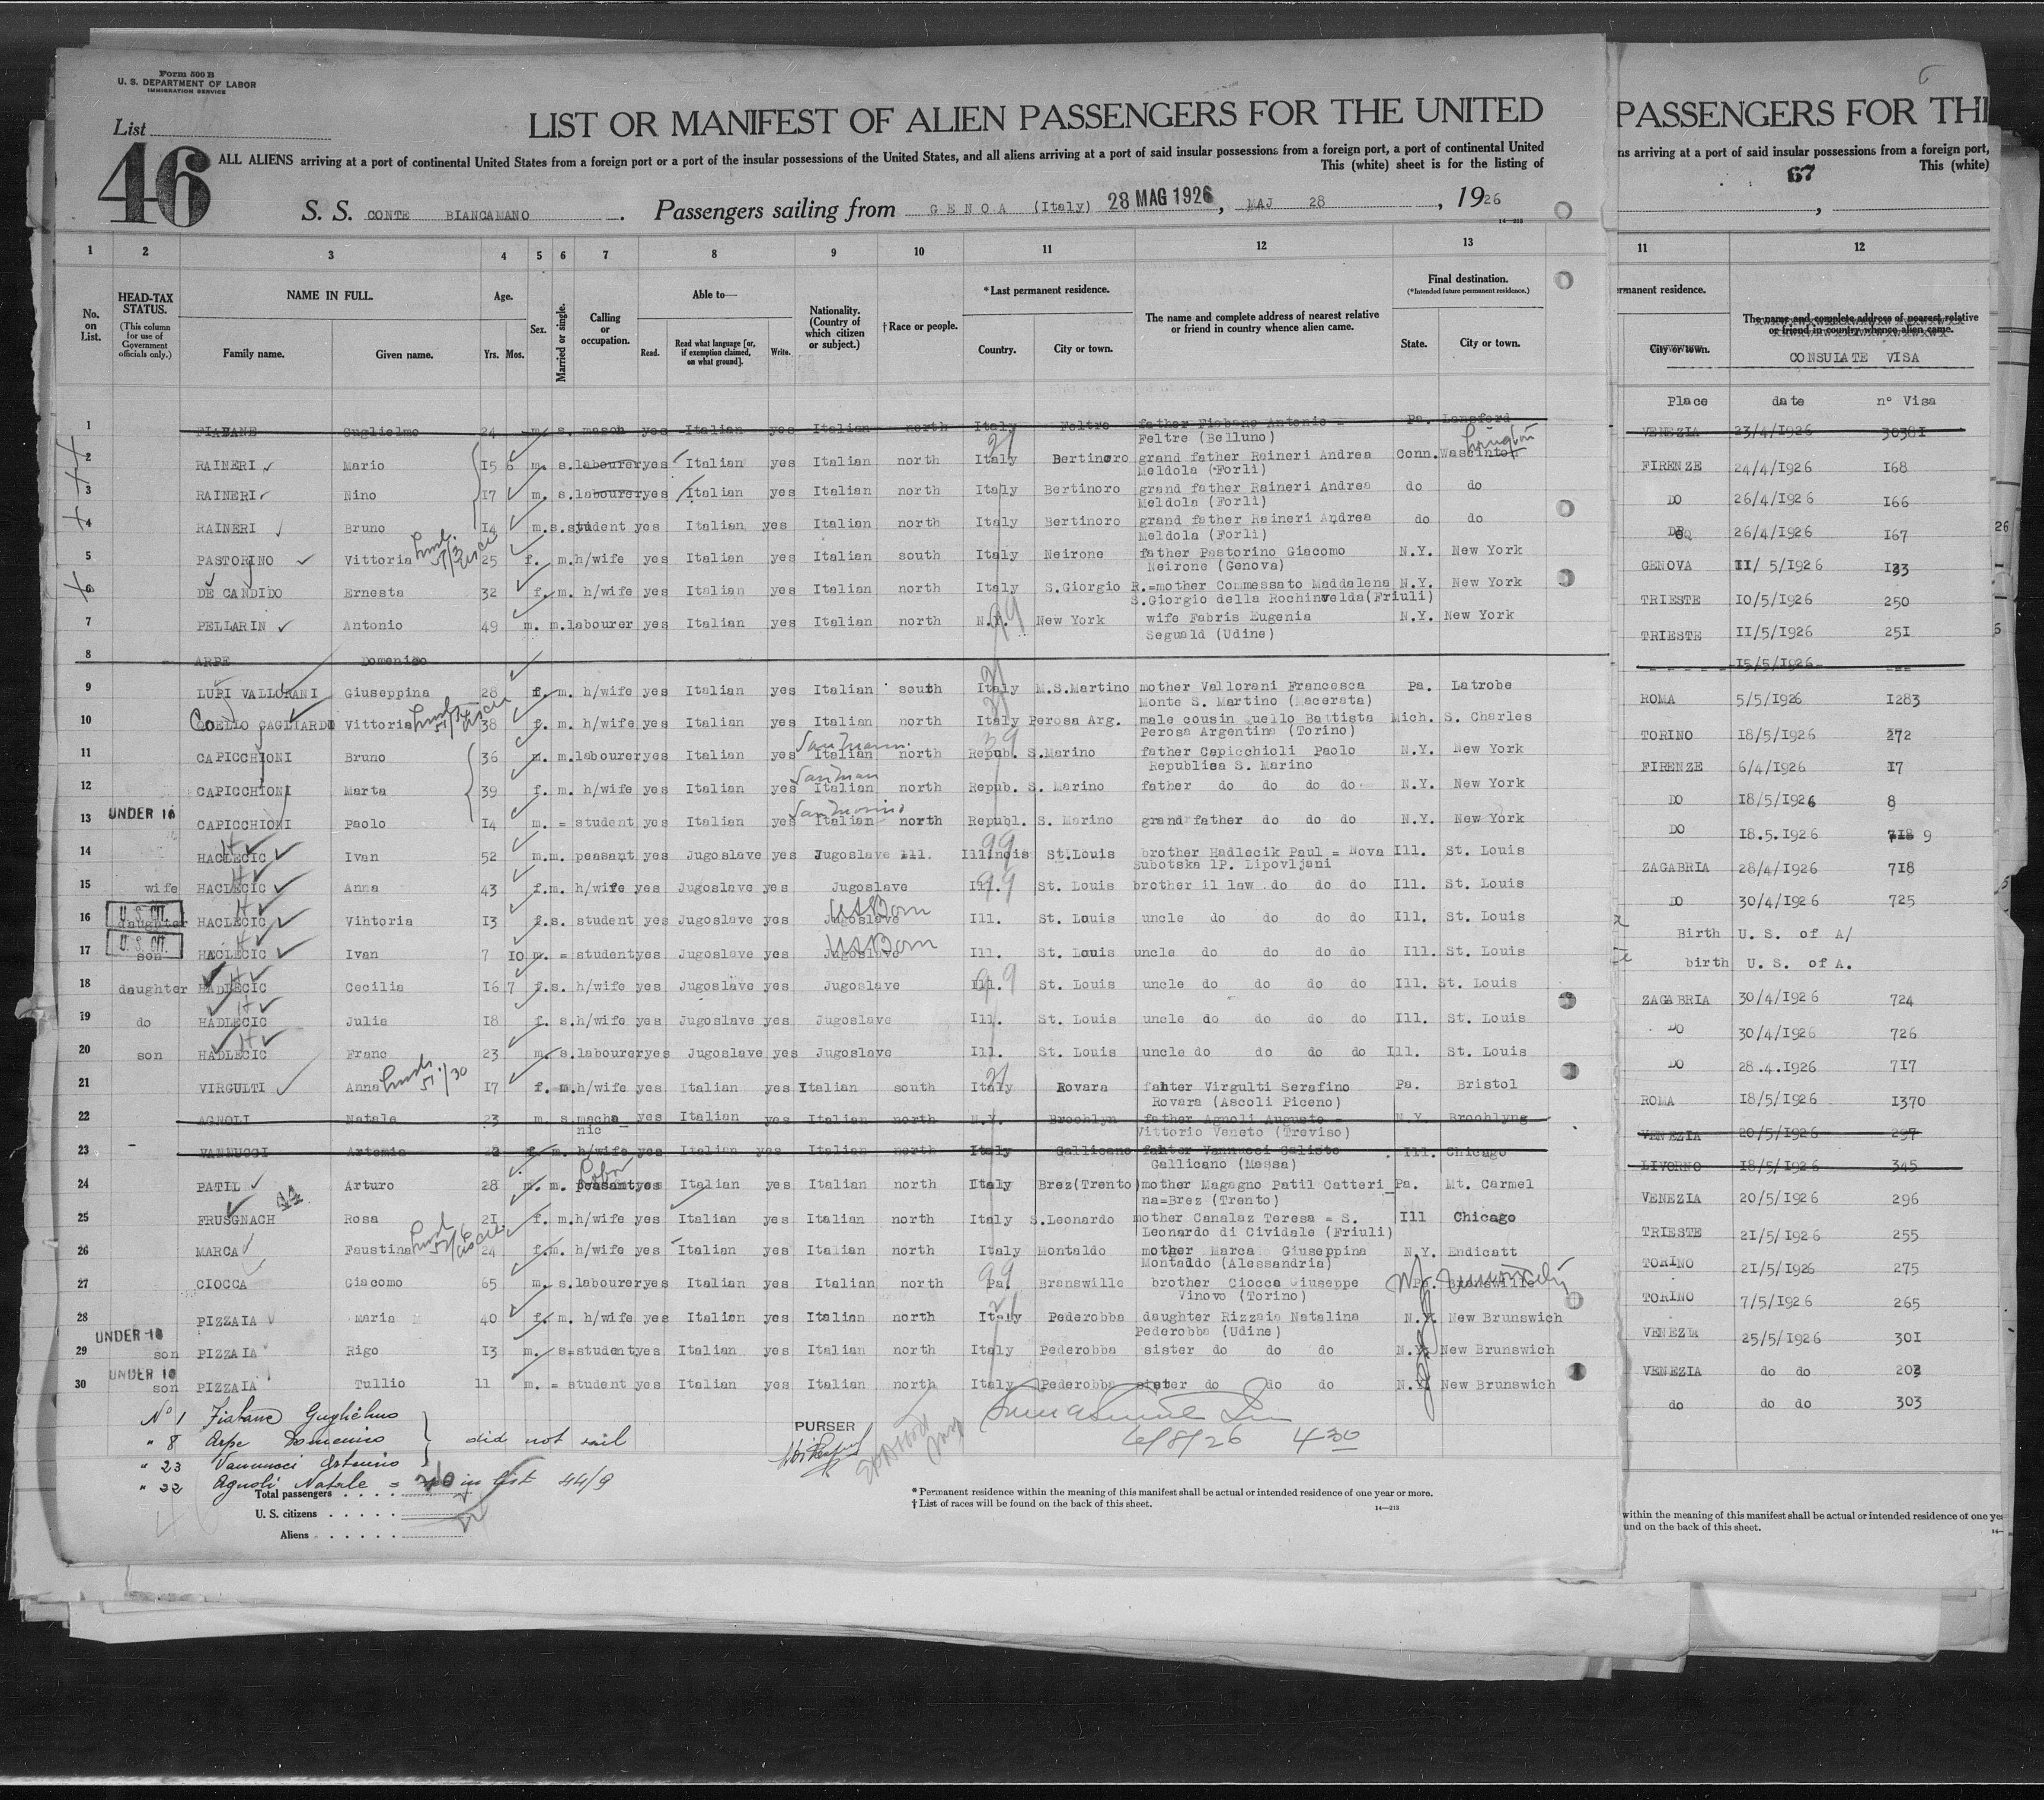 Form 500 B
U. S. DEPARTMENT OF LABOR
IMMIGRATION SERVICE
List
46
LIST OR MANIFEST OF ALIEN PASSENGERS FOR THE UNITED
ALL ALIENS arriving at a port of continental United States from a foreign port or a port of the insular possessions of the United States, and all aliens arriving at a port of said insular possessions from a foreign port, a port of continental United
This (white) sheet is for the listing of
S. S. CONTE BIANCAMANO . Passengers sailing from GENOA (Italy) 28 MAG 1926 , MAJ 28 , 1926
14—213
1 2 3 4 5 6 7 8 9 10 11 12 13
No. on List.
HEAD-TAX STATUS.
(This column for use of Government officials only.)
NAME IN FULL.
Family name. Given name.
Age.
Yrs. Mos.
Sex.
Married or single.
Calling or occupation.
Able to—
Read. Read what language [or, if exemption claimed, on what ground]. Write.
Nationality. (Country of which citizen or subject.)
† Race or people.
* Last permanent residence.
Country. City or town.
The name and complete address of nearest relative or friend in country whence alien came.
Final destination.
(*Intended future permanent residence.)
State. City or town.
1 FIABANE Guglielmo 24 m. s. mason yes Italian yes Italian north Italy Feltre father Fiabane Antonio = Pa. Lansford
Feltre (Belluno)
2 RAINERI Mario 15 6 m. s. labourer yes Italian yes Italian north Italy Bertinoro grand father Raineri Andrea Conn. Wascinton
Meldola (Forlì)
3 RAINERI Nino 17 m. s. labourer yes Italian yes Italian north Italy Bertinoro grand father Raineri Andrea do do
Meldola (Forlì)
4 RAINERI Bruno 14 m. s. student yes Italian yes Italian north Italy Bertinoro grand father Raineri Andrea do do
Meldola (Forlì)
5 PASTORINO Vittoria 25 f. m. h/wife yes Italian yes Italian south Italy Neirone father Pastorino Giacomo N.Y. New York
Neirone (Genova)
6 DE CANDIDO Ernesta 32 f. m. h/wife yes Italian yes Italian north Italy S.Giorgio R.=mother Commessato Maddalena N.Y. New York
S.Giorgio della Rochinvelda(Friuli)
7 PELLARIN Antonio 49 m. m. labourer yes Italian yes Italian north N.Y. New York wife Fabris Eugenia N.Y. New York
Seguald (Udine)
8 ARPE Domenico
9 LUPI VALLORANI Giuseppina 28 f. m. h/wife yes Italian yes Italian south Italy M.S.Martino mother Vallorani Francesca Pa. Latrobe
Monte S. Martino (Macerata)
10 COELLO GAGLIARDO Vittoria 38 f. m. h/wife yes Italian yes Italian north Italy Perosa Arg. male cousin Quello Battista Mich. S. Charles
Perosa Argentina (Torino)
San Marin.
11 CAPICCHIONI Bruno 36 m. m. labourer yes Italian yes Italian north Republ. S.Marino father Capicchioli Paolo N.Y. New York
Republica S. Marino
San Marin
12 CAPICCHIONI Marta 39 f. m. h/wife yes Italian yes Italian north Repub. S. Marino father do do do N.Y. New York
UNDER 16 San Marino
13 CAPICCHIONI Paolo 14 m. = student yes Italian yes Italian north Republ. S. Marino grand father do do do N.Y. New York
14 HACLECIC Ivan 52 m. m. peasant yes Jugoslave yes Jugoslave Ill. Illinois St.Louis brother Hadlecik Paul = Nova Ill. St. Louis
Subotska lP. Lipovljani
15 wife HACLECIC Anna 43 f. m. h/wife yes Jugoslave yes Jugoslave Ill. St. Louis brother il law do do do Ill. St. Louis
U.S. CIT. US Born
16 daughter HACLECIC Vihtoria 13 f. s. student yes Jugoslave yes Jugoslave Ill. St. Louis uncle do do do Ill. St. Louis
U.S. CIT. US Born
17 son HACLECIC Ivan 7 10 m. = student yes Jugoslave yes Jugoslave Ill. St. Louis uncle do do do Ill. St. Louis
18 daughter HADLECIC Cecilia 16 7 f. s. h/wife yes Jugoslave yes Jugoslave Ill. St. Louis uncle do do do Ill. St. Louis
19 do HADLECIC Julia 18 f. s. h/wife yes Jugoslave yes Jugoslave Ill. St. Louis uncle do do do Ill. St. Louis
20 son HADLECIC Franc 23 m. s. labourer yes Jugoslave yes Jugoslave Ill. St. Louis uncle do do do Ill. St. Louis
21 VIRGULTI Anna 17 f. m. h/wife yes Italian yes Italian south Italy Rovara fahter Virgulti Serafino Pa. Bristol
Rovara (Ascoli Piceno)
22 AGNOLI Natale 23 m. s. macha= yes Italian Italian north N.Y. Brochlyn father Agnoli Augusto = N.Y. Brochlyng
nic Vittorio Veneto (Treviso)
23 VANNUCCI Artemia 22 f. m. h/wife yes Italian yes Italian north Italy Gallicano fahter Vannucci Calisto Ill. Chicago
Gallicano (Massa)
24 PATIL Arturo 28 m. m. peasant yes Italian yes Italian north Italy Brez(Trento) mother Magagno Patil Catteri_ Pa. Mt. Carmel
na=Brez (Trento)
25 FRUSGNACH Rosa 21 f. m. h/wife yes Italian yes Italian north Italy S.Leonardo mother Canalaz Teresa = S. Ill Chicago
Leonardo di Cividale (Friuli)
26 MARCA Faustina 24 f. m. h/wife yes Italian yes Italian north Italy Montaldo mother Marca Giuseppina N.Y. Endicatt
Montaldo (Alessandria)
27 CIOCCA Giacomo 65 m. s. labourer yes Italian yes Italian north Pa. Branswille brother Ciocca Giuseppe Pa. Branswille
Vinovo (Torino)
28 PIZZAIA Maria 40 f. m. h/wife yes Italian yes Italian north Italy Pederobba daughter Rizzaia Natalina N.Y. New Brunswich
Pederobba (Udine)
UNDER 16
29 son PIZZAIA Rigo 13 m. s= student yes Italian yes Italian north Italy Pederobba sister do do do N.Y. New Brunswich
UNDER 16
30 son PIZZAIA Tullio 11 m. = student yes Italian yes Italian north Italy Pederobba sister do do do N.Y. New Brunswich
No 1 Fiabane Guglielmo
" 8 Arpe Domenico did not sail
" 23 Vannucci Artemio
" 22 Agnoli Natale = in list 44/9
PURSER
6/8/26 4 30
Total passengers
U. S. citizens
Aliens
* Permanent residence within the meaning of this manifest shall be actual or intended residence of one year or more.
† List of races will be found on the back of this sheet.
14—213
PASSENGERS FOR THE
ns arriving at a port of said insular possessions from a foreign port,
This (white)
67
11 12
rmanent residence.
City or town.
The name and complete address of nearest relative
or friend in country whence alien came.
CONSULATE VISA
Place date n° Visa
VENEZIA 23/4/1926 30381
FIRENZE 24/4/1926 168
DO 26/4/1926 166
26/4/1926 167
GENOVA 11/ 5/1926 133
TRIESTE 10/5/1926 250
TRIESTE 11/5/1926 251
15/5/1926 ---
ROMA 5/5/1926 1283
TORINO 18/5/1926 272
FIRENZE 6/4/1926 17
DO 18/5/1926 8
DO 18.5.1926 718 9
ZAGABRIA 28/4/1926 718
DO 30/4/1926 725
Birth U. S. of A/
birth U. S. of A.
ZAGABRIA 30/4/1926 724
DO 30/4/1926 726
DO 28.4.1926 717
ROMA 18/5/1926 1370
VENEZIA 20/5/1926 297
LIVORNO 18/5/1926 345
VENEZIA 20/5/1926 296
TRIESTE 21/5/1926 255
TORINO 21/5/1926 275
TORINO 7/5/1926 265
VENEZIA 25/5/1926 301
VENEZIA do do 202
do do do 303
within the meaning of this manifest shall be actual or intended residence of one ye
und on the back of this sheet.
14—